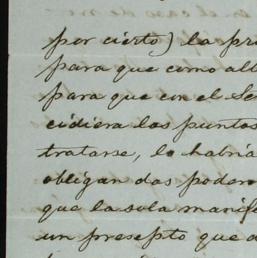 por cierto) la pri
para que como alb
para que con el Se
cidiera los puntos
tratarse, lo habria
obligan dos podero
que la sola manife
un presepto que a